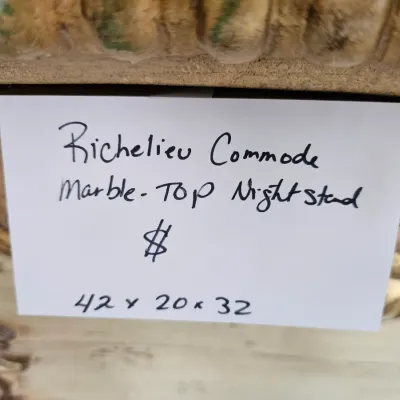 Richelieu Commode
Marble-Top Nightstand
$
42 x 20 x 32